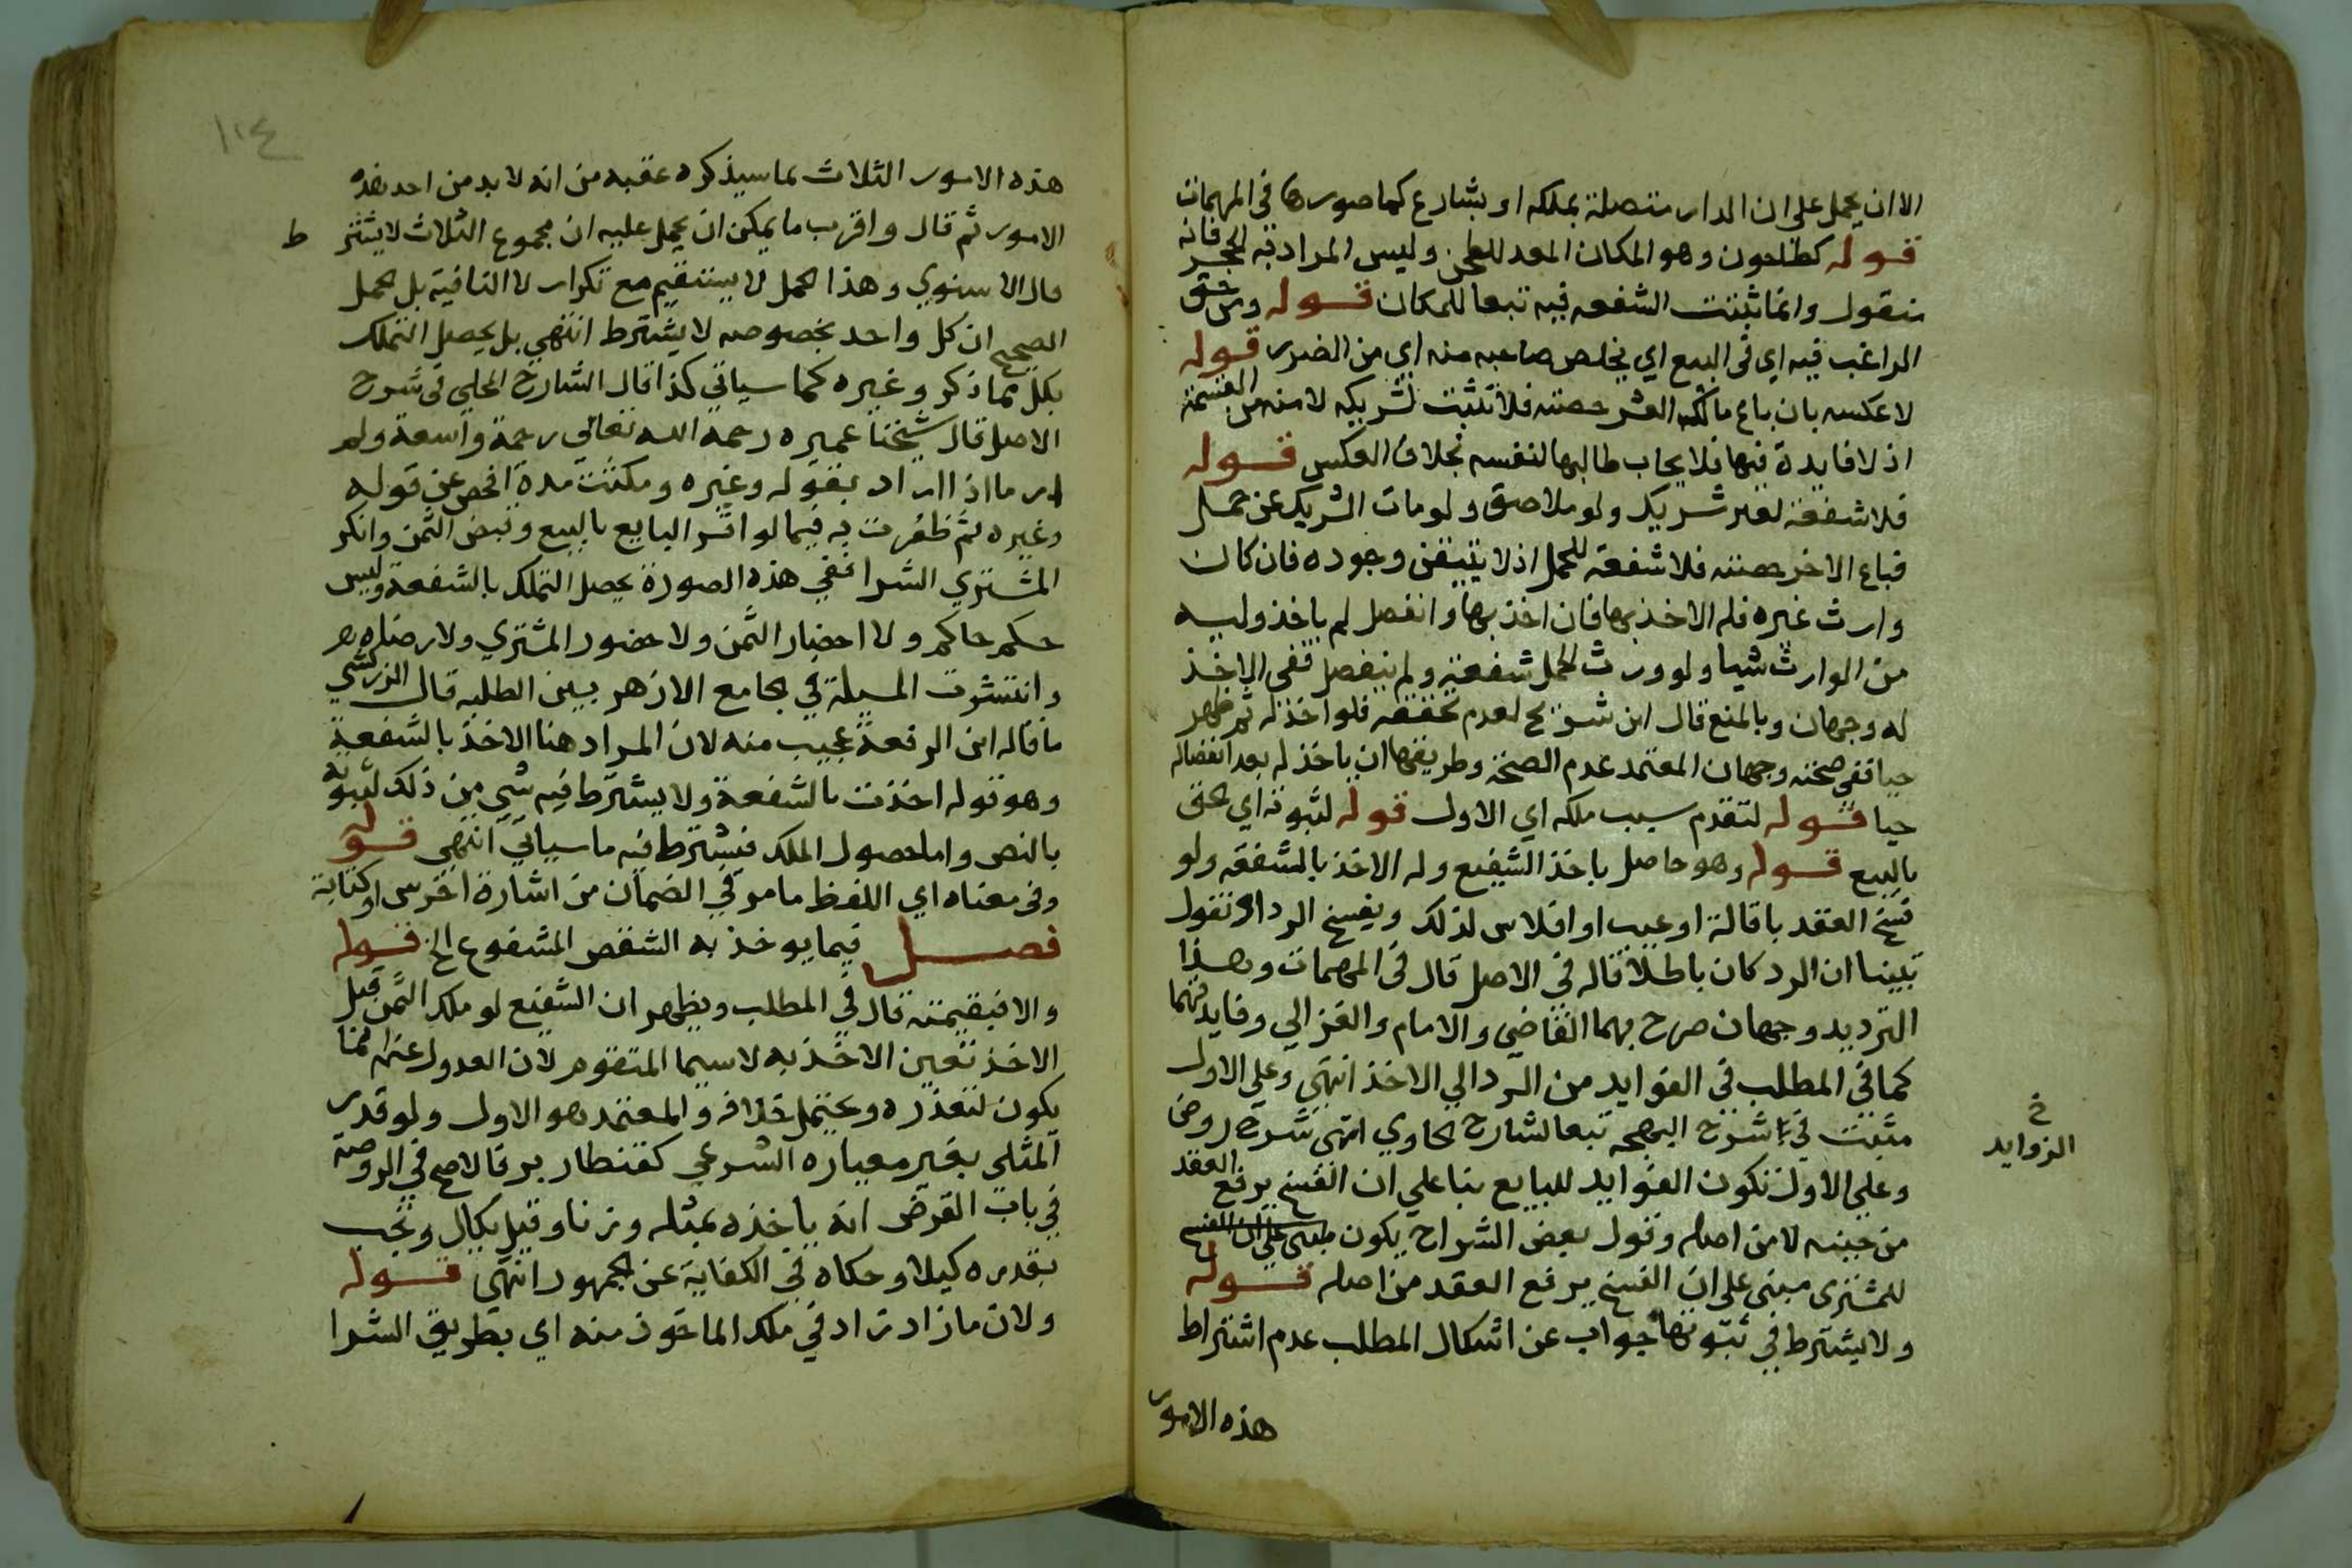 الا ان يحمل على ان الدار متصلة بملكه او بشارع كما صورها في المهمات
قوله كطاحون وهو المكان المعد للطحن وليس المراد به الحجر فانه
منقول وانما تثبت الشفعه فيه تبعا للمكان قوله ومن حق
الراغب فيه اي في البيع اي يخلص صاحبه منه اي من الضرر قوله
لا عكسه بان باع مالك العشر حصته فلا تثبت لشريكه لامنه من القسمة
اذ لا فايدة فيها فلا يجاب طالبها لنفسه بخلاف العكس قوله
فلا شفعة لغير شريك ولو ملاصق ولو مات الشريك عن حمل
فباع الاخر حصته فلا شفعة للحمل اذ لا يتيقن وجوده فان كان
وارث غيره فله الاخذ بها فان اخذ بها وانفصل لم ياخذ وليه
من الوارث شيا ولو ورث الحمل شفعة ولم ينفصل ففي الاخذ
له وجهان وبالمنع قال ابن شريح لعدم تحققه فلو اخذ له ثم ظهر
حيا ففي صحته وجهان المعتمد عدم الصحة وطريقها ان ياخذ له بعد انفصاله
حيا قوله لتقدم سبب ملكه اي الاول قوله لثبوته اي حتى
بالبيع قوله وهو حاصل باخذ الشفيع وله الاخذ بالشفعة ولو
فسخ العقد باقالة او عيب او افلاس لذلك ويفسخ الرد او نقول
تبينا ان الرد كان باطلا قاله في الاصل قال في المهمات وهذا
الترديد وجهان صرح بهما القاضي والامام والغزالي وفايدتهما
كما في المطلب في الفوايد من الرد الي الاخذ انتهي وعلي الاول
مثبت في شرح البهجه تبعا لشارح الحاوي انتهى شرح روض
خ
الزوايد
وعلي الاول تكون الفوايد للبايع بنا علي ان الفسخ يرفع العقد
من حينه لا من اصله وقول بعض الشراح يكون مبني علي ان الفسخ
للمشتري مبني على ان الفسخ يرفع العقد من اصله قوله
ولا يشترط في ثبوتها جواب عن اشكال المطلب عدم اشتراط
هذه الامور
١٠٤
هذه الامور الثلاث بما سيذكره عقبه من انه لا بد من احد هذه
الامور ثم قال واقرب ما يمكن ان يحمل عليه ان مجموع الثلاث لا يشتر ط
قال الاسنوي وهذا الحمل لا يستقيم مع تكرار لا النافية بل الحمل
الصحيح ان كل واحد بخصوصه لا يشترط انتهي بل يحصل التملك
بكل مما ذكر وغيره كما سياتي كذا قال الشارح المحلي في شرح
الاصل قال شيخنا عميره رحمه الله تعالي رحمة واسعة ولم
ادر ماذا اراد بقوله وغيره ومكثت مدة افحص عن قوله
وغيره ثم ظفرت به فيما لو اقر البايع بالبيع وقبض الثمن وانكر
المشتري الشرا ففي هذه الصورة يحصل التملك بالشفعة وليس
حكم حاكم ولا احضار الثمن ولا حضور المشتري ولا رضاه
وانتشرت المسيلة في جامع الازهر بين الطلبه قال الزركشي
ما قاله ابن الرفعة عجيب منه لان المراد هنا الاخذ بالشفعة
وهو قوله اخذت بالشفعة ولا يشترط فيه شي من ذلك لثبوته
بالنص واما حصول الملك فيشترط فيه ما سياتي انتهى قوله
وفي معناه اي اللفظ ما مر في الضمان من اشارة اخرس او كتابة
فصل فيما يوخذ به الشقص المشفوع الخ قوله
والا فبقيمته قال في المطلب ويظهر ان الشفيع لو ملك الثمن قبل
الاخذ تعين الاخذ به لا سيما المتقوم لان العدول عنه انما
يكون لتعذره ويحتمل خلافه والمعتمد هو الاول ولو قدر
المثلي بغير معياره الشرعي كقنطار بر فالاصح في الروضة
في باب القرض انه ياخذه بمثله وزنا وقيل يكال ويجب
بقدره كيلا وحكاه في الكفاية عن الجمهور انتهي قوله
ولان ما زاد زاد في ملك الماخوذ منه اي بطريق الشرا